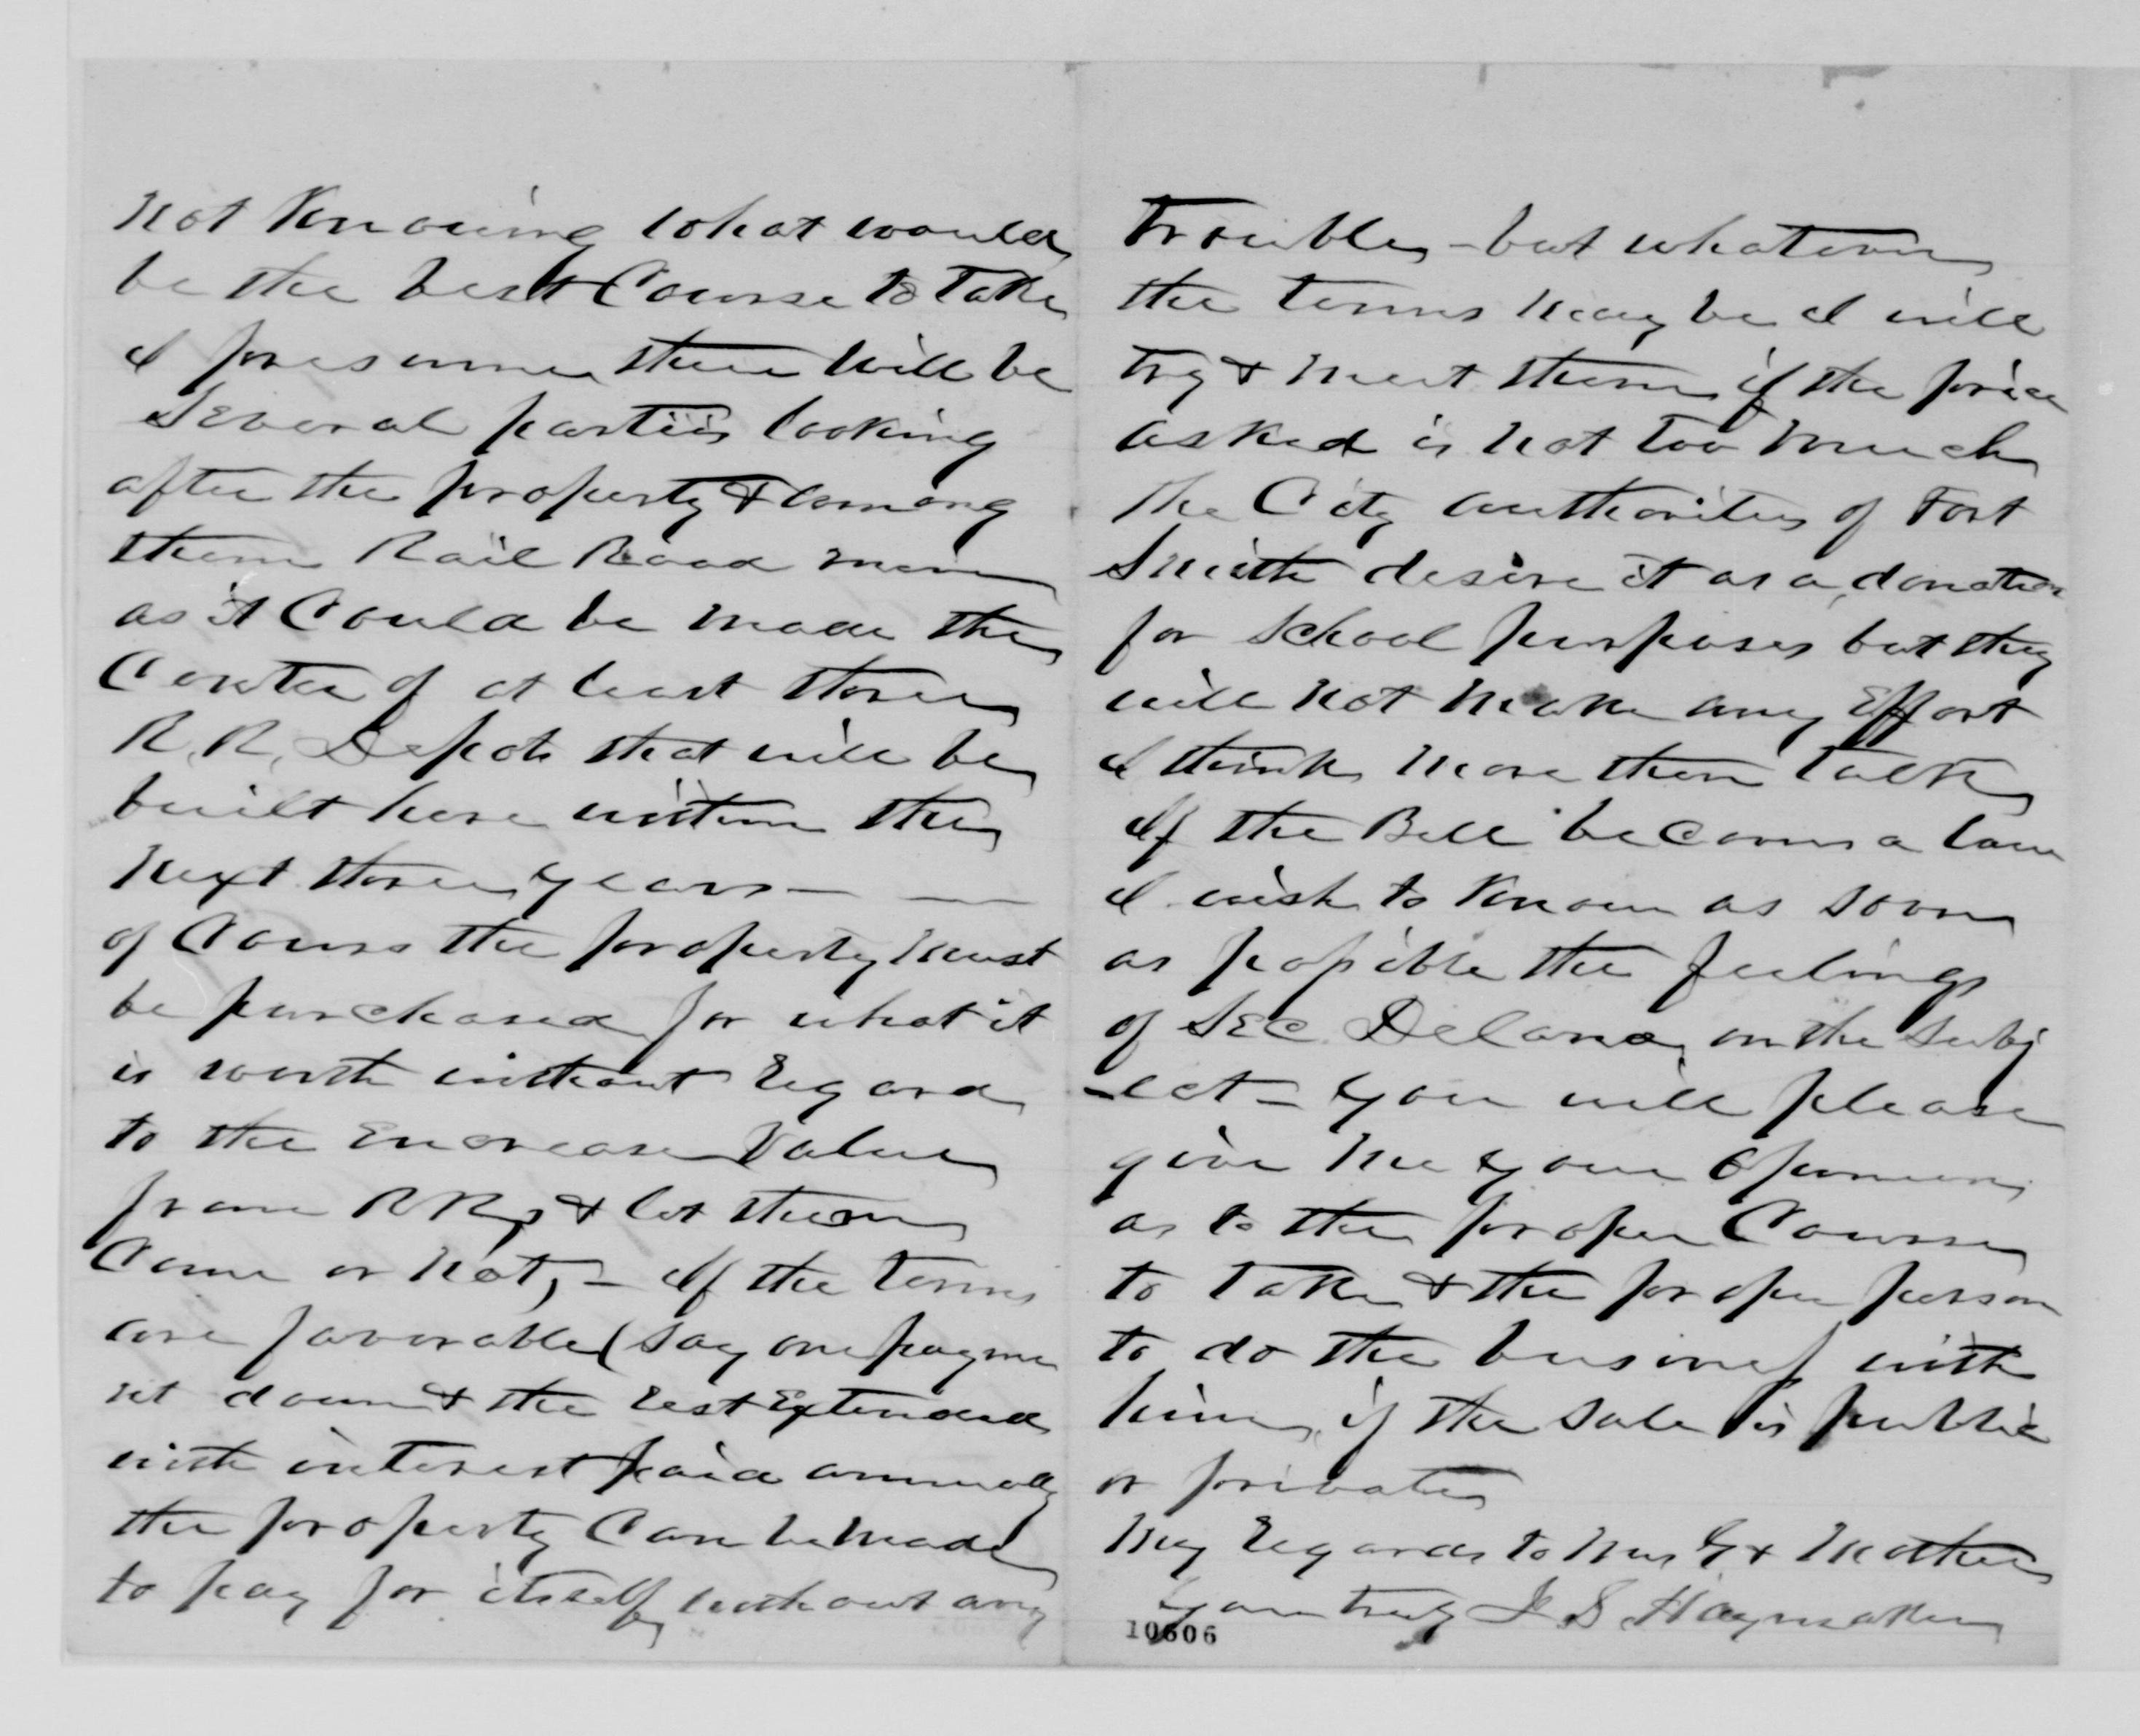 not Knowing what would
be the best Course to take
I presume there will be
Several parties looking
after the property & among
them Rail Road men
as it Could be made the
Center of at least three
R.R. Depots that will be
built here within the
next three years —
of Course the property must
be purchased for what it
is worth without regard
to the Encrease Value
from RRs & let them
Come or not, – If the terms
are favorable (say one payme
nt down & the rest Extended
with interest paid annually
the property Can be made
to pay for itself without any
trouble – but whatever
the terms may be I will
try & meet them if the price
asked is not too much
The City authorities of Fort
Smith desire it as a donation
for School purposes but they
will not make any Effort
I think more then talk
If the Bill becomes a law
I wish to Know as soon
as possible the feelings
of SEC. Delano on the Subj
-ect – you will please
give me your Opinion
as to the proper Course
to take & the proper person
to do the business with
him, if the sale is public
or private
My regards to Mrs G & Mother
Yours truly J S Haymaker
10606